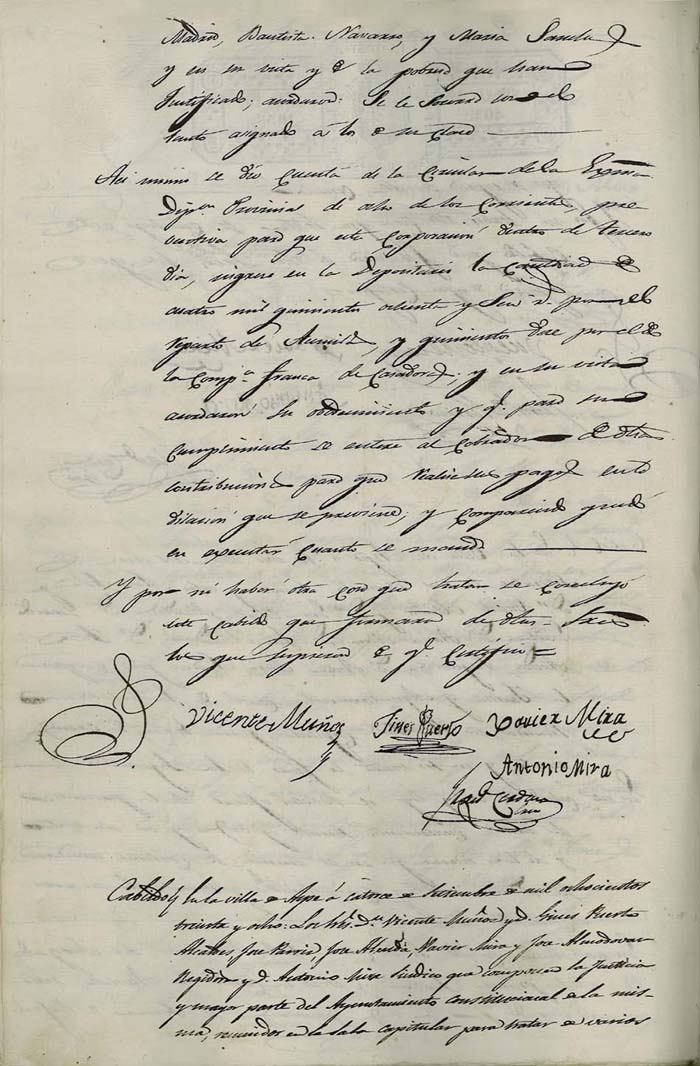 Madrid, Bautista Navarro, y Maria
y en su vista y de la pobresa que han
Justificado; acordaron: Se le Socorra con el
tanto asignado á los de su clase
Asi mismo se dio cuenta de la Circular de la Exma.
Dipn. Provincial de ocho de los Corrientes, pre
ventiva para que esta Corporacion dentro de tercero
dia, ingrese en la Depositaria la Cantidad de
cuatro mil quinientos ochenta y Seis r. por el
reparto de, y quinientos doce por el de
la Compa. franca de Casadores; y en su vista
acordaron su obedecimiento y q. para su
Cumplimiento se entere al Cobrador de dhas
contribuciones para que realise sus pagos en la
dilacion que se previene; y
en executar Cuanto se manda
Y por no haber otra cosa que tratar se concluyó
este Cabildo que firmaron de dhos Sres
los que supieron de q. Certifico =
Vicente Muñoz Gines Puerto Xavier Mira
Antonio Mira
Cabildo En la villa de Aspe á catorce de Setiembre de mil ochocientos
treinta y ocho: Los Sres. Dn. Vicente Muñoz y D. Gines Puerto
Alcaldes, Jose Pavia, Jose Alenda, Xavier Mira y Jose Almodovar
Regidores y D. Antonio Mira Sindico que componen la Justicia
y mayor parte del Ayuntamiento Constitucional de la mis-
ma, reunidos en la Sala Capitular para tratar de varios